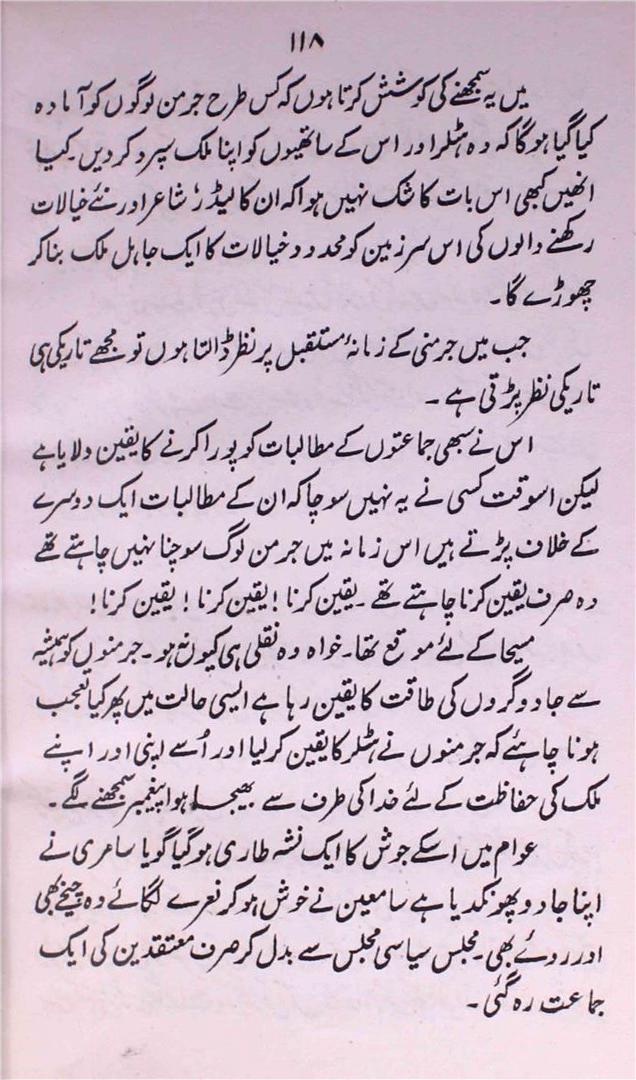 ۱۱۸
میں یہ سمجھنے کی کوشش کرتا ہوں کہ کس طرح جرمن لوگوں کو آمادہ
کیا گیا ہوگا کہ وہ ہٹلر اور اس کے ساتھیوں کو اپنا ملک سپرد کر دیں۔ کیا
انھیں کبھی اس بات کا شک نہیں ہوا کہ ان کا لیڈر شاعر اور نئے خیالات
رکھنے والوں کی اس سرزمین کو محدود خیالات کا ایک جاہل ملک بنا کر
چھوڑے گا۔
جب میں جرمنی کے زمانۂ مستقبل پر نظر ڈالتا ہوں تو مجھے تاریکی ہی
تاریکی نظر پڑتی ہے۔
اس نے سبھی جماعتوں کے مطالبات کو پورا کرنے کا یقین دلایا ہے
لیکن اسوقت کسی نے یہ نہیں سوچا کہ ان کے مطالبات ایک دوسرے
کے خلاف پڑتے ہیں اس زمانہ میں جرمن لوگ سوچنا نہیں چاہتے تھے
وہ صرف یقین کرنا چاہتے تھے۔ یقین کرنا! یقین کرنا! یقین کرنا!
مسیحا کے لئے موقع تھا۔ خواہ وہ نقلی ہی کیوں نہ ہو۔ جرمنوں کو ہمیشہ
سے جادوگروں کی طاقت کا یقین رہا ہے ایسی حالت میں پھر کیا تعجب
ہونا چاہئے کہ جرمنوں نے ہٹلر کا یقین کر لیا اور اُسے اپنی اور اپنے
ملک کی حفاظت کے لئے خدا کی طرف سے بھیجا ہوا پیغمبر سمجھنے لگے۔
عوام میں اسکے جوش کا ایک نشہ طاری ہو گیا گویا سامری نے
اپنا جادو پھونکدیا ہے سامعین نے خوش ہو کر نعرے لگائے وہ چیخے بھی
اور روئے بھی۔ مجلس سیاسی مجلس سے بدل کر صرف معتقدین کی ایک
جماعت رہ گئی۔